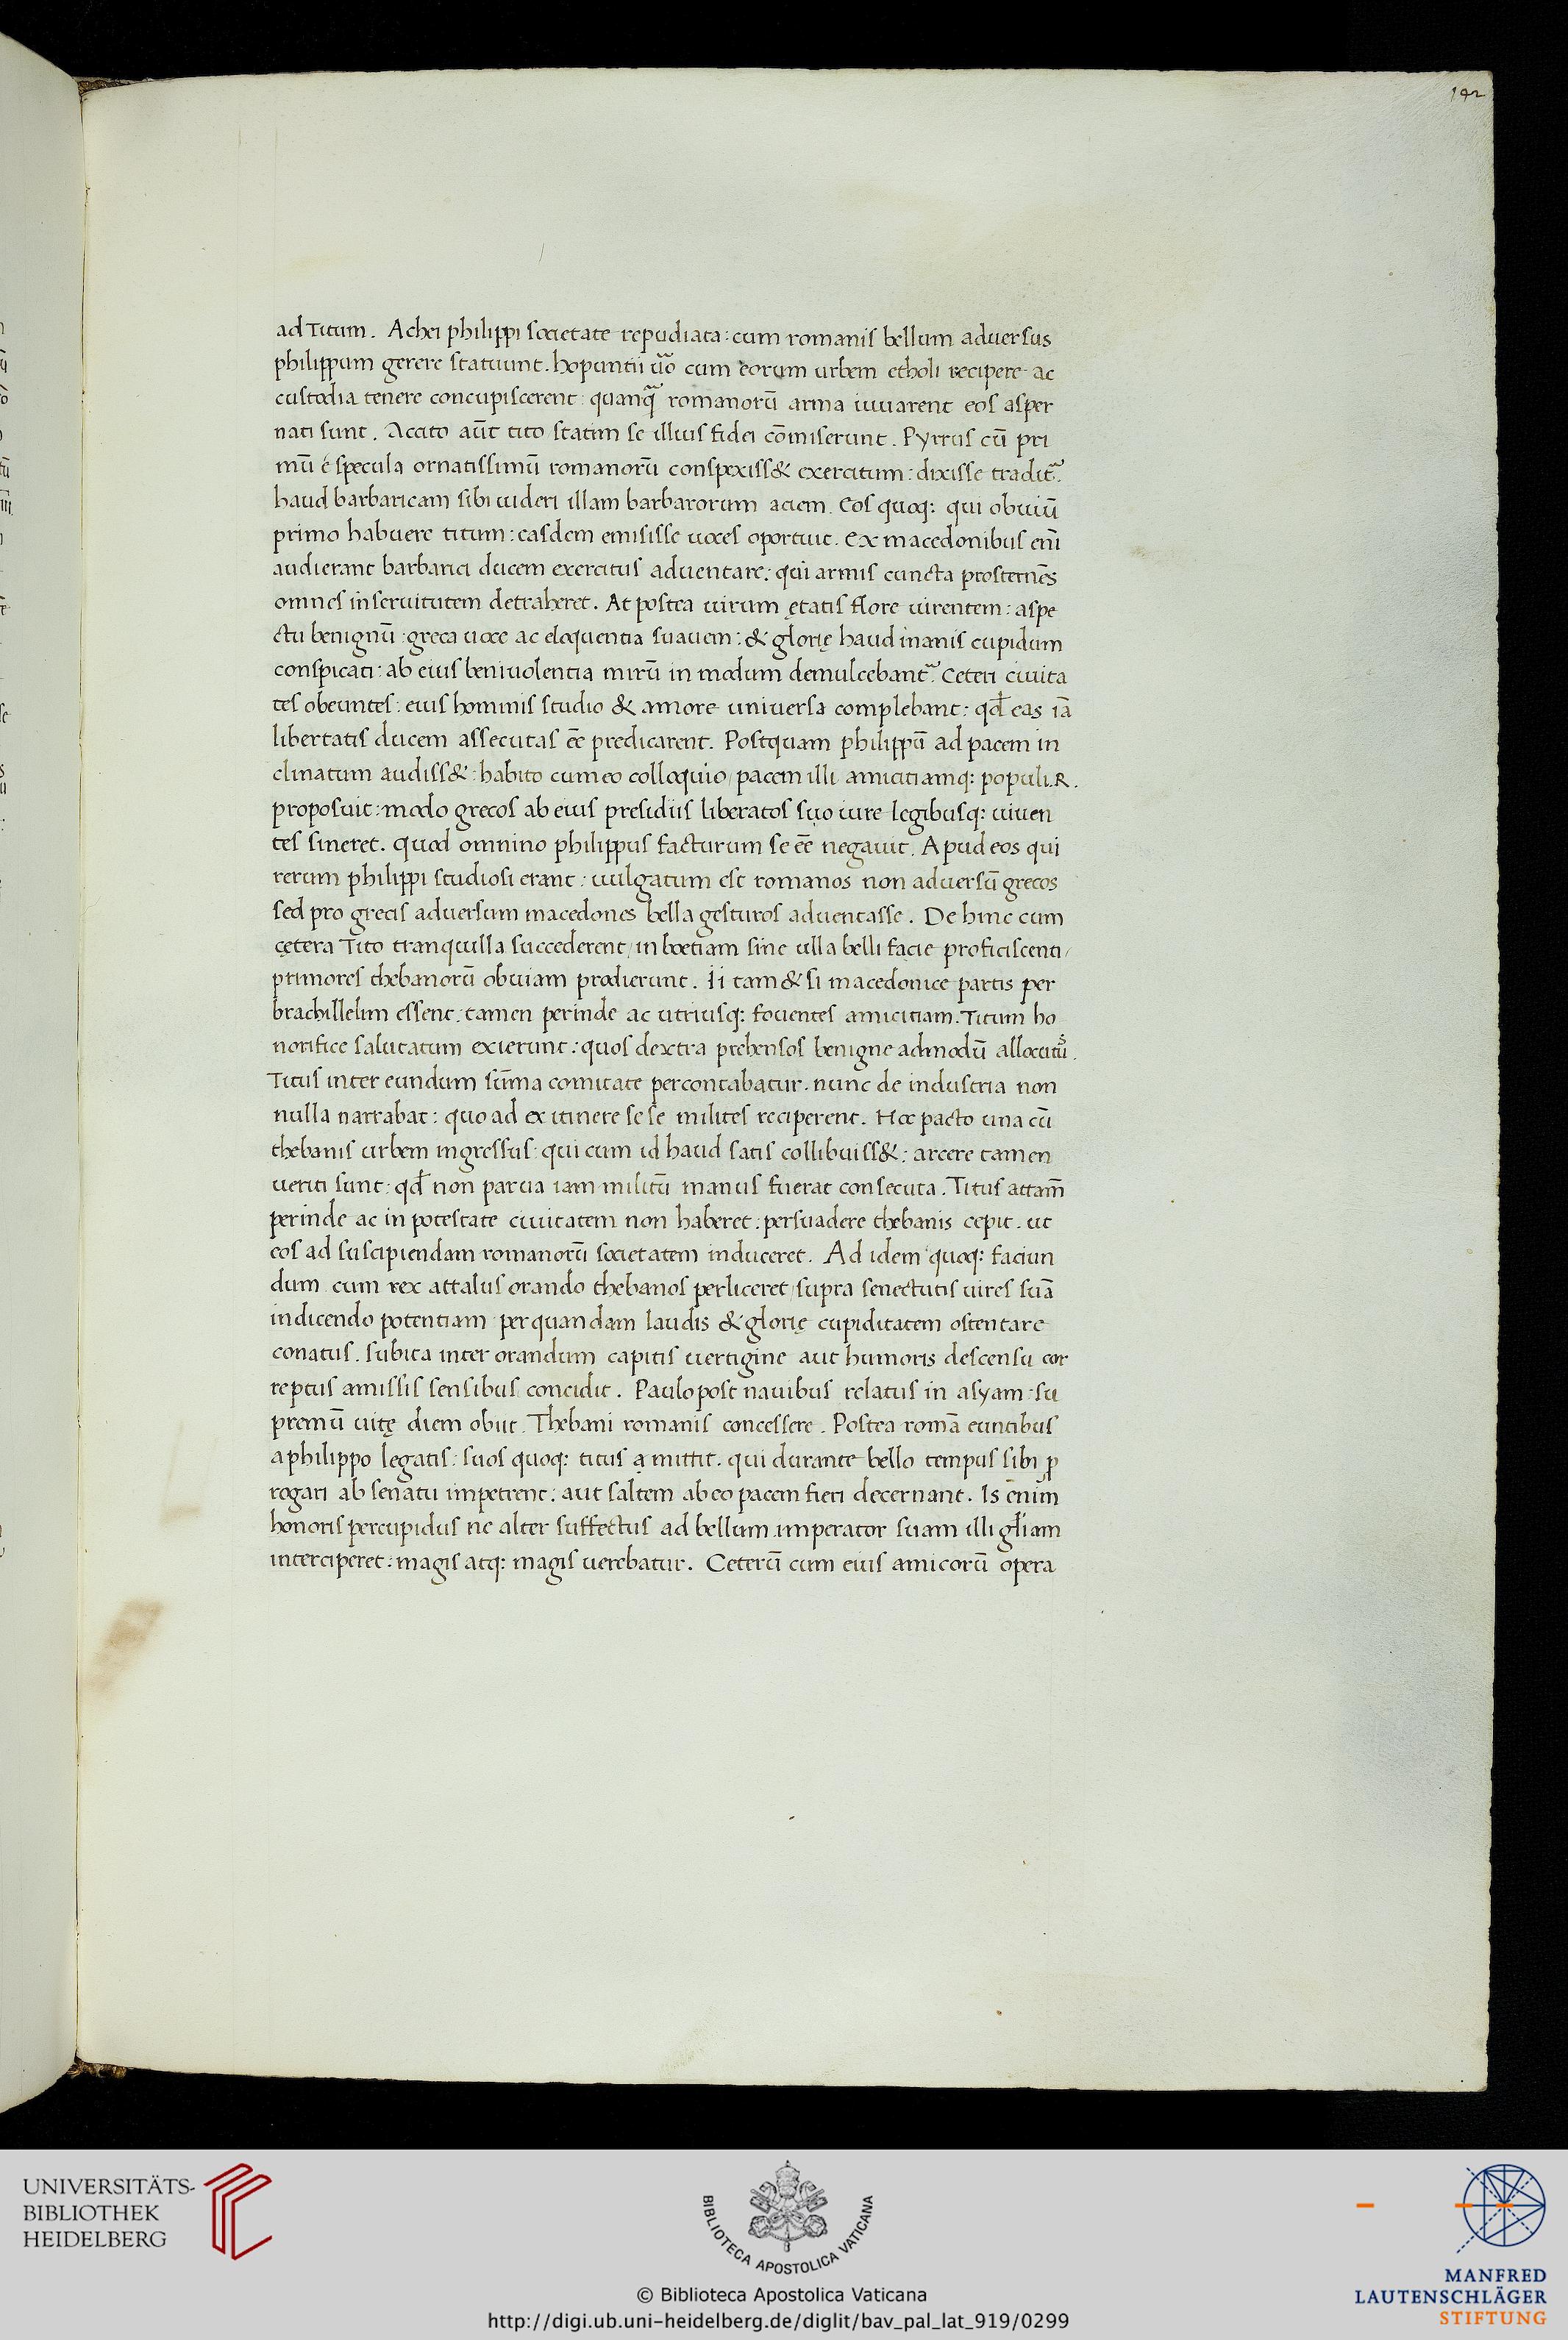 192
ad Titum. Achei philippi societate repudiata: cum romanis bellum adversus
philippum gerere statuunt. hopuntii u͞o cum eorum urbem etholi recipere ac
custodia tenere concupiscerent: quanq̃ romanorū arma iuuarent eos asper
nati sunt. Accito aūt tito statim se illius fidei cōmiserunt. Pyrrus cū pri
mū e specula ornatissimū romanorū conspexiss& exercitum: dixisse tradit᷒.
haud barbaricam sibi uideri illam barbarorum aciem. Eos quoq: qui obuiū
primo habuere titum: easdem emisisse uoces oportuit. Ex macedonibus eni̅
audierant barbarici ducem exercitus aduentare: qui armis cuncta prosternēs
omnes in seruitutem detraheret. At postea uirum ętatis flore uirentem: aspe
ctu benignū: greca uoce ac eloquentia suauem: & glorię haud inanis cupidum
conspicati: ab eius beniuolentia mirū in modum demulcebant᷒. Ceteri ciuita
tes obeuntes: eius hominis studio & amore universa complebant: qđ eas iā
libertatis ducem assecutas eē predicarent. Postquam philippū ad pacem in
clinatum audiss&: habito cum eo colloquio/ pacem illi amicitiamq: populi.R.
proposuit: modo grecos ab eius presidiis liberatos suo iure legibusq: uiuen
tes sineret. quod omnino philippus facturum se eē negauit. Apud eos qui
rerum philippi studiosi erant: uulgatum est romanos non adversū grecos
sed pro grecis adversum macedones bella gesturos aduentasse. De hinc cum
cętera Tito tranquilla succederent/ in boetiam sine ulla belli facie proficiscenti/
primores thebanorū obuiam prodierunt. Ii tam & si macedonice partis per
brachillelim essent: tamen perinde ac utriusq: fouentes amicitiam. Titum ho
norifice salutatum exierunt: quos dextra prehensos benigne admodū allocutū.
Titus inter eundum sūma comitate percontabatur. nunc de industria non
nulla narrabat: quo ad ex itinere se se milites reciperent. Hoc pacto una cū
thebanis urbem ingressus: qui cum id haud satis collibuiss&: arcere tamen
ueriti sunt: qđ non parua iam militū manus fuerat consecuta. Titus attam̄
perinde ac in potestate ciuitatem non haberet: persuadere thebanis cepit. ut
eos ad suscipiendam romanorū societatem induceret. Ad idem quoq: faciun
dum cum rex attalus orando thebanos perliceret/ supra senectutis uires suā
indicendo potentiam per quandam laudis & glorię cupiditatem ostentare
conatus. subita inter orandum capitis uertigine aut humoris descensu cor
reptus amissis sensibus concidit. Paulo post nauibus relatus in asyam: su
premū uitę diem obiit. Thebani romanis concessere. Postea romā euntibus
a philippo legatis: suos quoq: titus a mittit. qui durante bello tempus sibi ꝓ
rogari ab senatu impetrent: aut saltem ab eo pacem fieri decernant. Is enim
honoris percupidus ne alter suffectus ad bellum imperator suam illi gl̄iam
interciperet: magis atq: magis uerebatur. Ceterū cum eius amicorū opera
UNIVERSITÄTS-
BIBLIOTHEK
HEIDELBERG
BIBLIOTECA APOSTOLICA VATICANA
© Biblioteca Apostolica Vaticana
http://digi.ub.uni-heidelberg.de/diglit/bav_pal_lat_919/0299
MANFRED
LAUTENSCHLÄGER
STIFTUNG